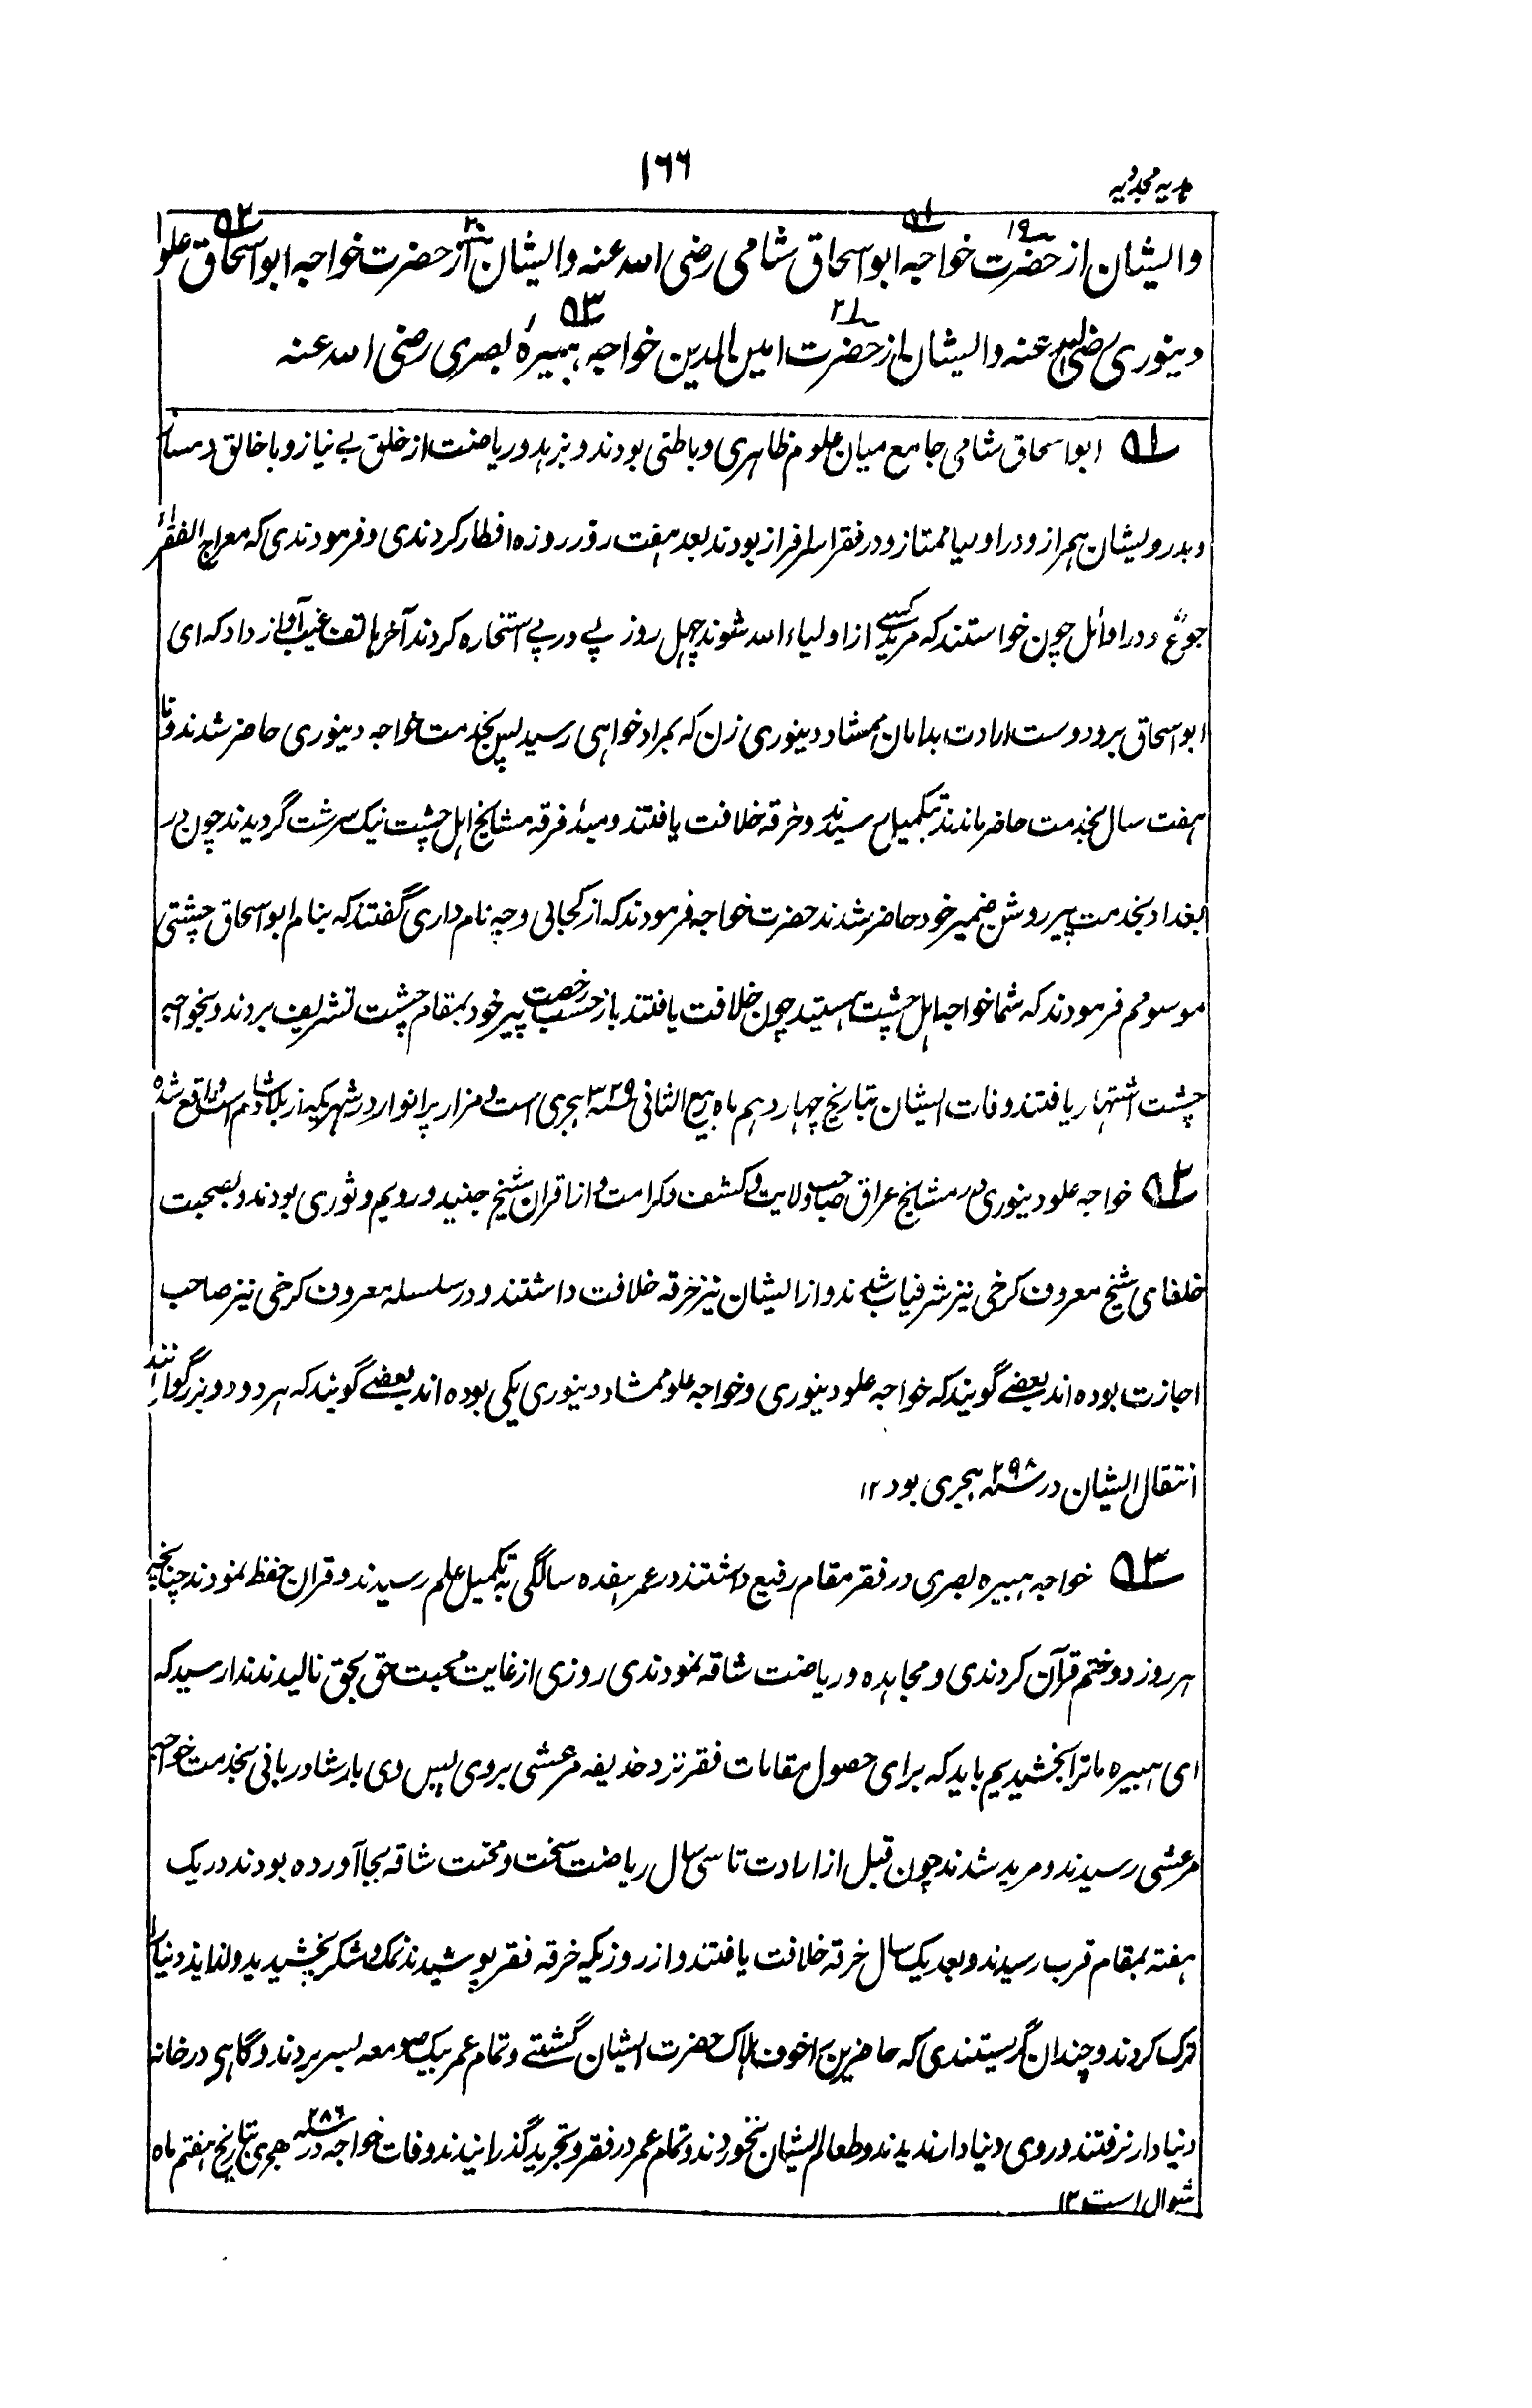 ۱۶۶
ہدیہ مجددیہ
و ایشان از حضرت خواجہ ابو اسحاق شامی رضی اللہ عنہ و ایشان از حضرت خواجہ ابو اسحاق علو
۱۹ ۵۱ ۲۰ ۵۲
دینوری رضی اللہ عنہ و ایشان از حضرت امین الدین خواجہ ہبیرہ بصری رضی اللہ عنہ
۲۱ ۵۳
۵۱ ابو اسحاق شامی جامع میان علوم ظاہری و باطنی بودند و بزہد و ریاضت از خلق بے نیاز و با خالق دمساز
و بدرویشان ہمراز و در اولیا ممتاز و در فقرا سرفراز بودند بعد ہفت روز روزہ افطار کردندی و فرمودندی کہ معراج الفقراء
جوع و در اوائل چون خواستند کہ مرید کسے از اولیاء اللہ شوند چہل روز پے در پے استخارہ کردند آخر ہاتف غیب آواز داد کہ ای
ابو اسحاق برو دست ارادت بدامان ممشاد دینوری زن کہ بمراد خواہی رسید پس بخدمت خواجہ دینوری حاضر شدند و تا
ہفت سال بخدمت حاضر ماندند بتکمیل رسیدند و خرقہ خلافت یافتند و مبدٔ فرقہ مشایخ اہل چشت نیک سرشت گردیدند چون در
بغداد بخدمت پیر روشن ضمیر خود حاضر شدند حضرت خواجہ فرمودند کہ از کجائی و چہ نام داری گفتند کہ بنام ابو اسحاق چشتی
موسومم فرمودند کہ شما خواجہ اہل چشت ہستید چون خلافت یافتند باز حسب رخصت پیر خود بمقام چشت تشریف بردند و بخواجہ
چشت اشتہار یافتند وفات ایشان بتاریخ چہاردہم ماہ ربیع الثانی ۳۲۹ ہجری است و مزار پر انوار در شہر از بلاد شام است واقع شدہ
۵۲ خواجہ علو دینوری در مشایخ عراق صاحب ولایت و کشف و کرامت و از اقران شیخ جنید و رویم و نوری بودند و بصحبت
خلفای شیخ معروف کرخی نیز شرفیاب شدند و از ایشان نیز خرقہ خلافت داشتند و در سلسلہ معروف کرخی نیز صاحب
اجازت بودہ اند بعضے گویند کہ خواجہ علو دینوری و خواجہ علو ممشاد دینوری یکی بودہ اند بعضے گویند کہ ہر دو دو بزرگوارانند
انتقال ایشان در ۲۹۸ ہجری بود ۱۲
۵۳ خواجہ ہبیرہ بصری در فقر مقام رفیع داشتند در عمر ہفدہ سالگی بہ تکمیل علم رسیدند و قران حفظ نمودند چنانچہ
ہر روز دو ختم قرآن کردندی و مجاہدہ و ریاضت شاقہ نمودندی روزی از غایت محبت حق بحق نالیدند ندا رسید کہ
ای ہبیرہ ما ترا بخشیدیم باید کہ برای حصول مقامات فقر نزد حذیفہ مرعشی بروی پس وی بارشاد ربانی بخدمت خواجہ
مرعشی رسیدند و مرید شدند چون قبل از ارادت تا سی سال ریاضت سخت و محنت شاقہ بجا آوردہ بودند در یک
ہفتہ بمقام قرب رسیدند و بعد یک سال خرقہ خلافت یافتند و از روزیکہ خرقہ فقر پوشیدند نمک و شکر نچشیدید و لذایذ دنیا را
ترک کردند و چندان گریستندی کہ حاضرین را خوف ہلاک حضرت ایشان گشتے و تمام عمر بیک صومعہ بسر بردند و گاہی در خانہ
دنیا دار نرفتند و روی دنیا دار ندیدند و طعام ایشان نخوردند و تمام عمر در فقر و تجرید گذرانیدند وفات خواجہ در ۲۸۶ ہجری بتاریخ ہفتم ماہ
شوال است ۱۲